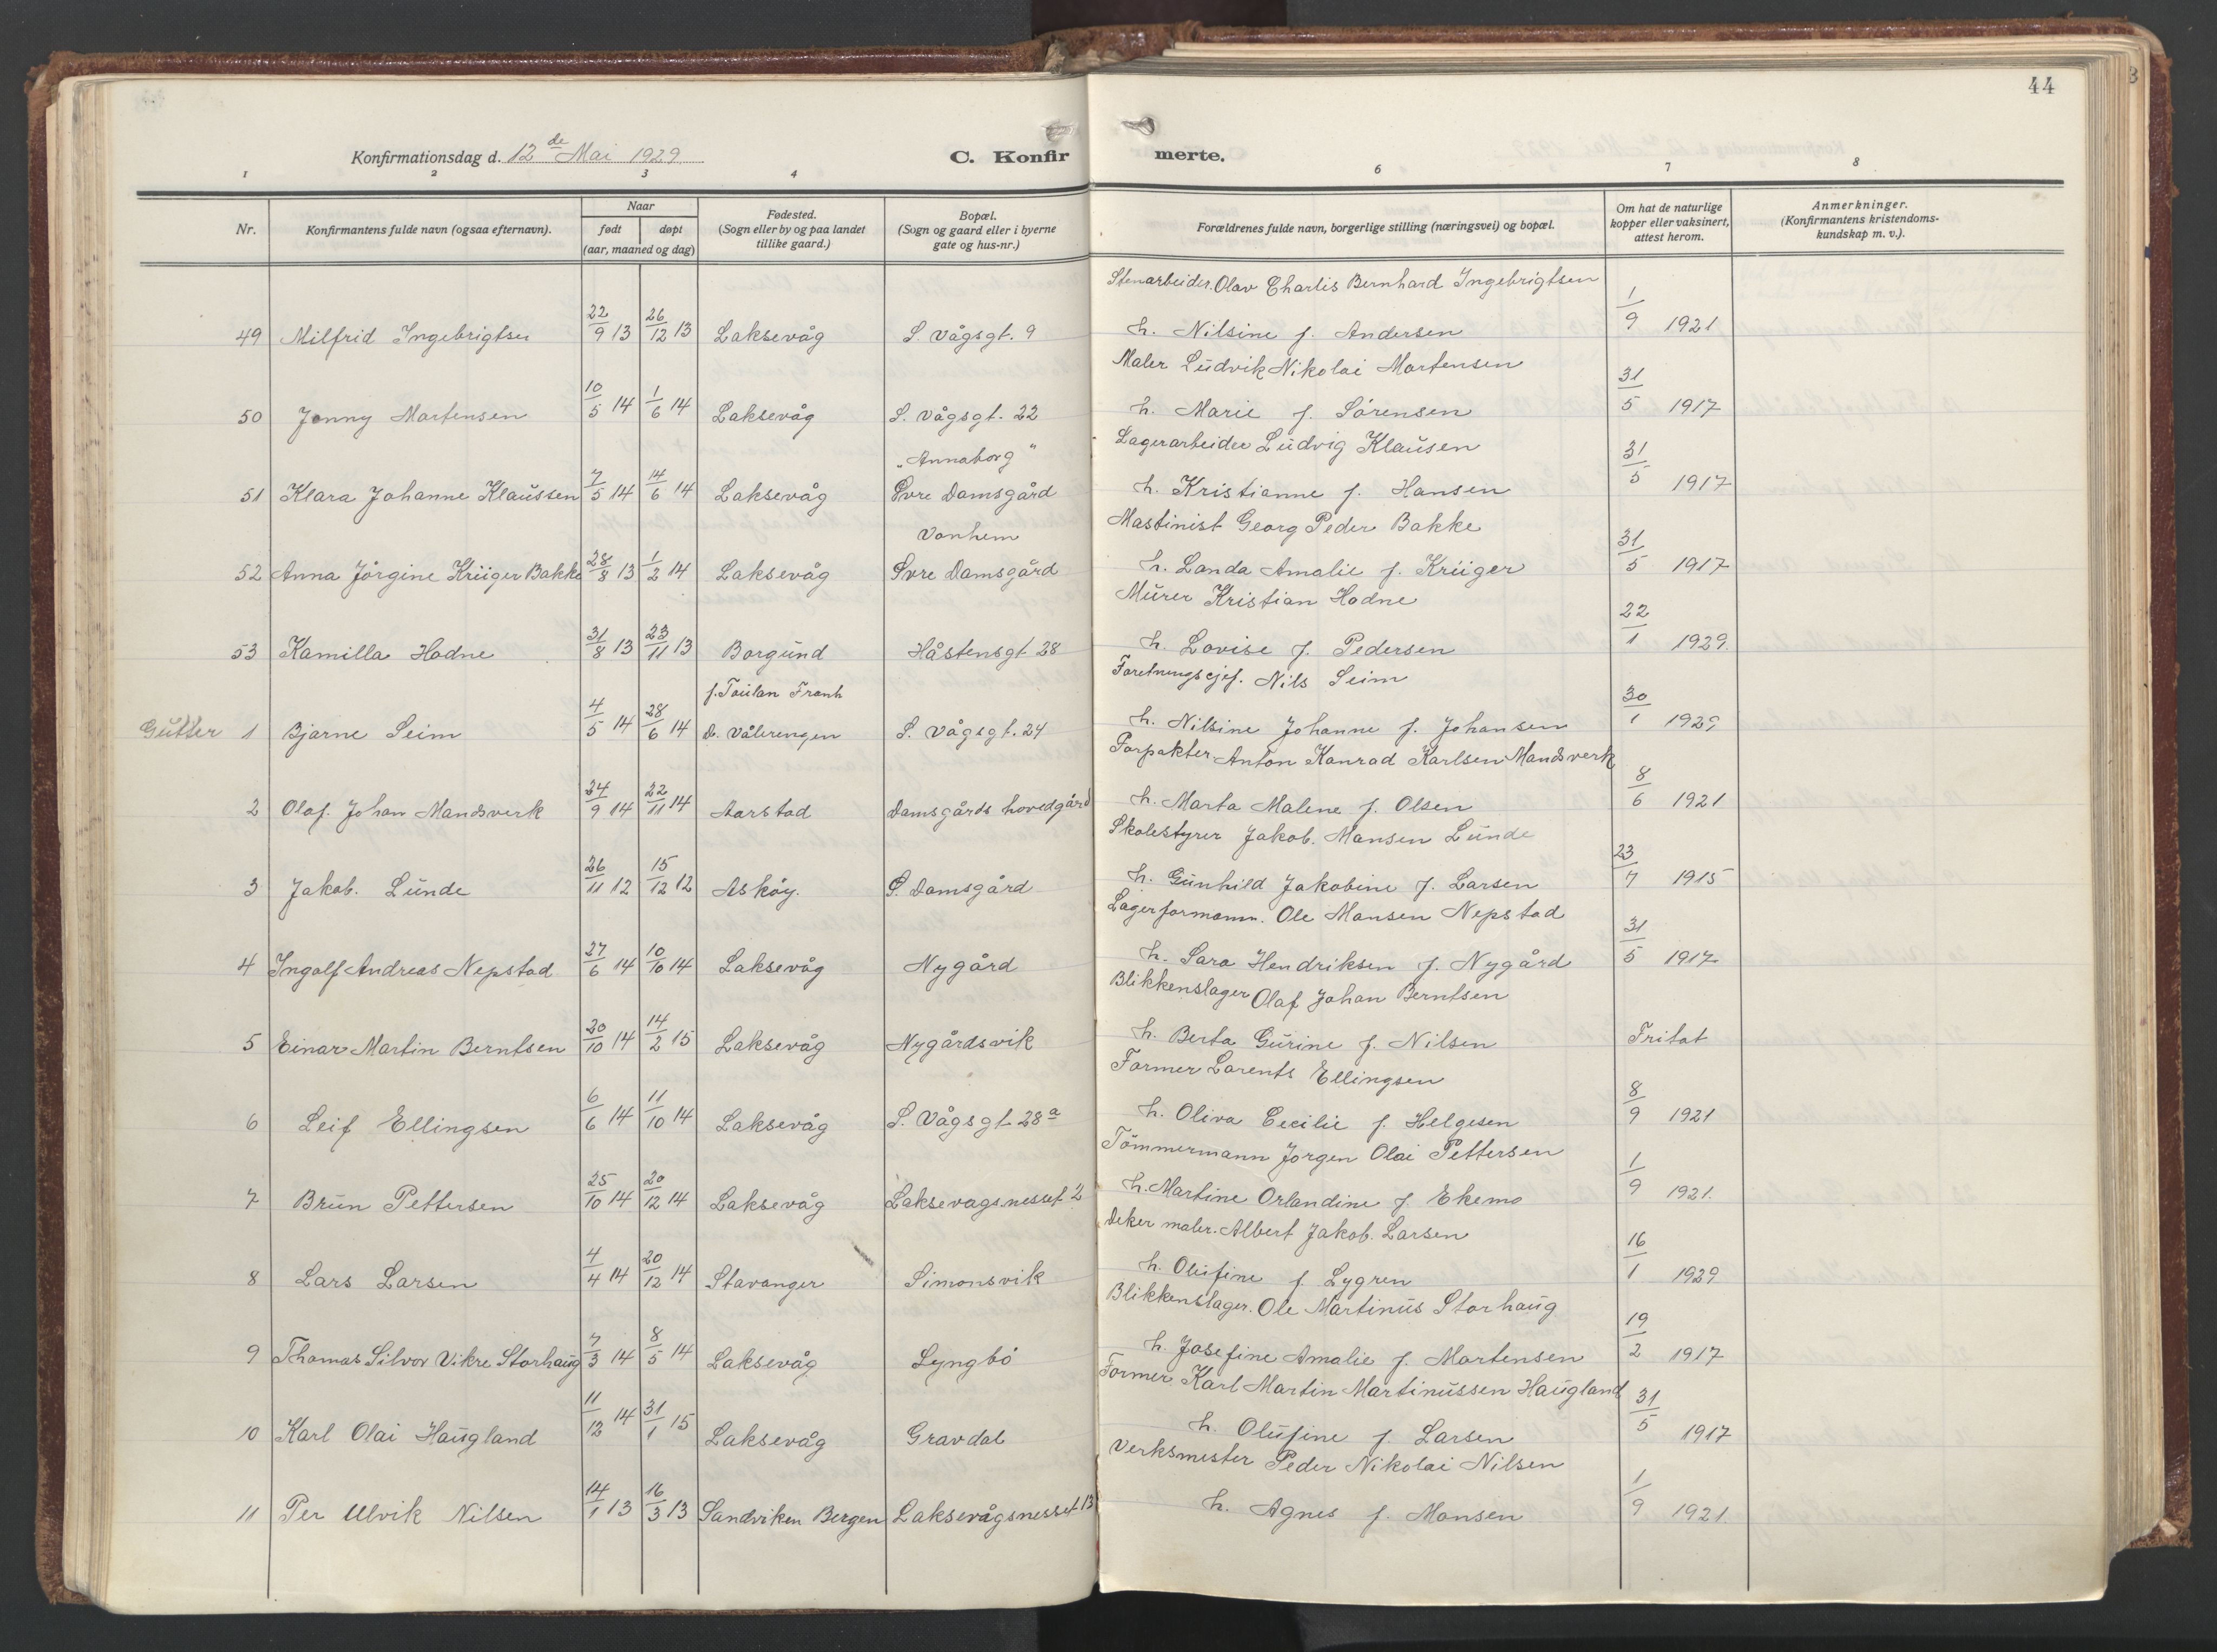 44
Konfirmationsdag d. 12de Mai 1929
C. Konfirmerte.
1 2 3 4 6 7 8
Nr. Konfirmantens fulde navn (ogsaa efternavn). Naar født døpt (aar, maaned og dag) Fødested. (Sogn eller by og paa landet tillike gaard.) Bopæl. (Sogn og gaard eller i byerne gate og hus-nr.) Forældrenes fulde navn, borgerlige stilling (næringsvei) og bopæl. Om hat de naturlige kopper eller vaksinert, attest herom. Anmerkninger. (Konfirmantens kristendoms-kundskap m. v.).
Stenarbeider. Olav Charlis Bernhard Ingebrigtsen
49 Milfrid Ingebrigtsen 22/9 13 26/12 13 Laksevåg S. Vågsgt. 9 h. Nilsine f. Andersen 1/9 1921
Maler Ludvik Nikolai Martensen
50 Jenny Martensen 10/5 14 1/6 14 Laksevåg S. Vågsgt. 22 h. Marie f. Sörensen 31/5 1917
"Annaborg" Lagerarbeider Ludvig Klausen
51 Klara Johanne Klaussen 7/5 14 14/6 14 Laksevåg Övre Damsgård h. Kristianne f. Hansen 31/5 1917
Vonhem Mastinist Georg Peder Bakke
52 Anna Jörgine Krüger Bakke 28/8 13 1/2 14 Laksevåg Övre Damsgård h. Landa Amalie f. Krüger 31/5 1917
Murer Kristian Hodne
53 Kamilla Hodne 31/8 13 23/11 13 Borgund Håstensgt 28 h. Lovise f. Pedersen 22/1 1929.
f. Toulan Frank Foretningscjef. Nils Seim
Gutter 1 Bjarne Seim 4/5 14 28/6 14 d. Vålerengen S. Vågsgt. 24 h. Nilsine Johanne f. Johansen 30/1 1929
Forpakter Anton Konrad Karlsen Mandsverk
2 Olaf Johan Mandsverk 24/9 14 22/11 14 Aarstad Damsgårds hovedgård h. Marta Malene f. Olsen 8/6 1921
Skolestyrer Jakob. Mansen Lunde
3 Jakob. Lunde 26/11 12 15/12 12 Asköy. S. Damsgård h. Gunhild Jakobine f. Larsen 23/7 1915
Lagerformann. Ole Monsen Nepstad
4 Ingolf Andreas Nepstad 27/6 14 10/10 14 Laksevåg Nygård h. Sara Hendriksen f. Nygård 31/5 1917
Blikkenslager Olaf Johan Berntsen
5 Einar Martin Berntsen 20/10 14 14/2 15 Laksevåg Nygårdsvik h. Berta Gurine f. Nilsen Fritat
Former Lorents Ellingsen
6 Leif Ellingsen 6/6 14 11/10 14 Laksevåg S. Vågsgt. 28a h. Oliva Cecilie f. Helgesen 8/9 1921
Tömmermann Jörgen Olai Pettersen
7 Brun Pettersen 25/10 14 20/12 14 Laksevåg Laksevagsnesset 2 h. Martine Orlandine f. Ekemo 1/9 1921.
deker maler. Albert Jakob. Larsen
8 Lars Larsen 4/4 14 20/12 14 Stavanger Simonsvik h. Olufine f. Lygren 16/1 1929
Blikkenslager. Ole Martinus Storhaug
9 Thomas Silvor Vikre Storhaug 7/3 14 8/5 14 Laksevåg Lyngbö h. Josefine Amalie f. Mortensen 19/2 1917
Former Karl Martin Martinussen Haugland
10 Karl Olai Haugland 11/12 14 31/1 15 Laksevåg Gravdal h. Olufine f. Larsen 31/5 1917
Verksmester Peder Nikolai Nilsen
11 Per Ulvik Nilsen 14/1 13 16/3 13 Sandviken Bergen Laksevågsnesset 13 h. Agnes f. Monsen 1/9 1921.